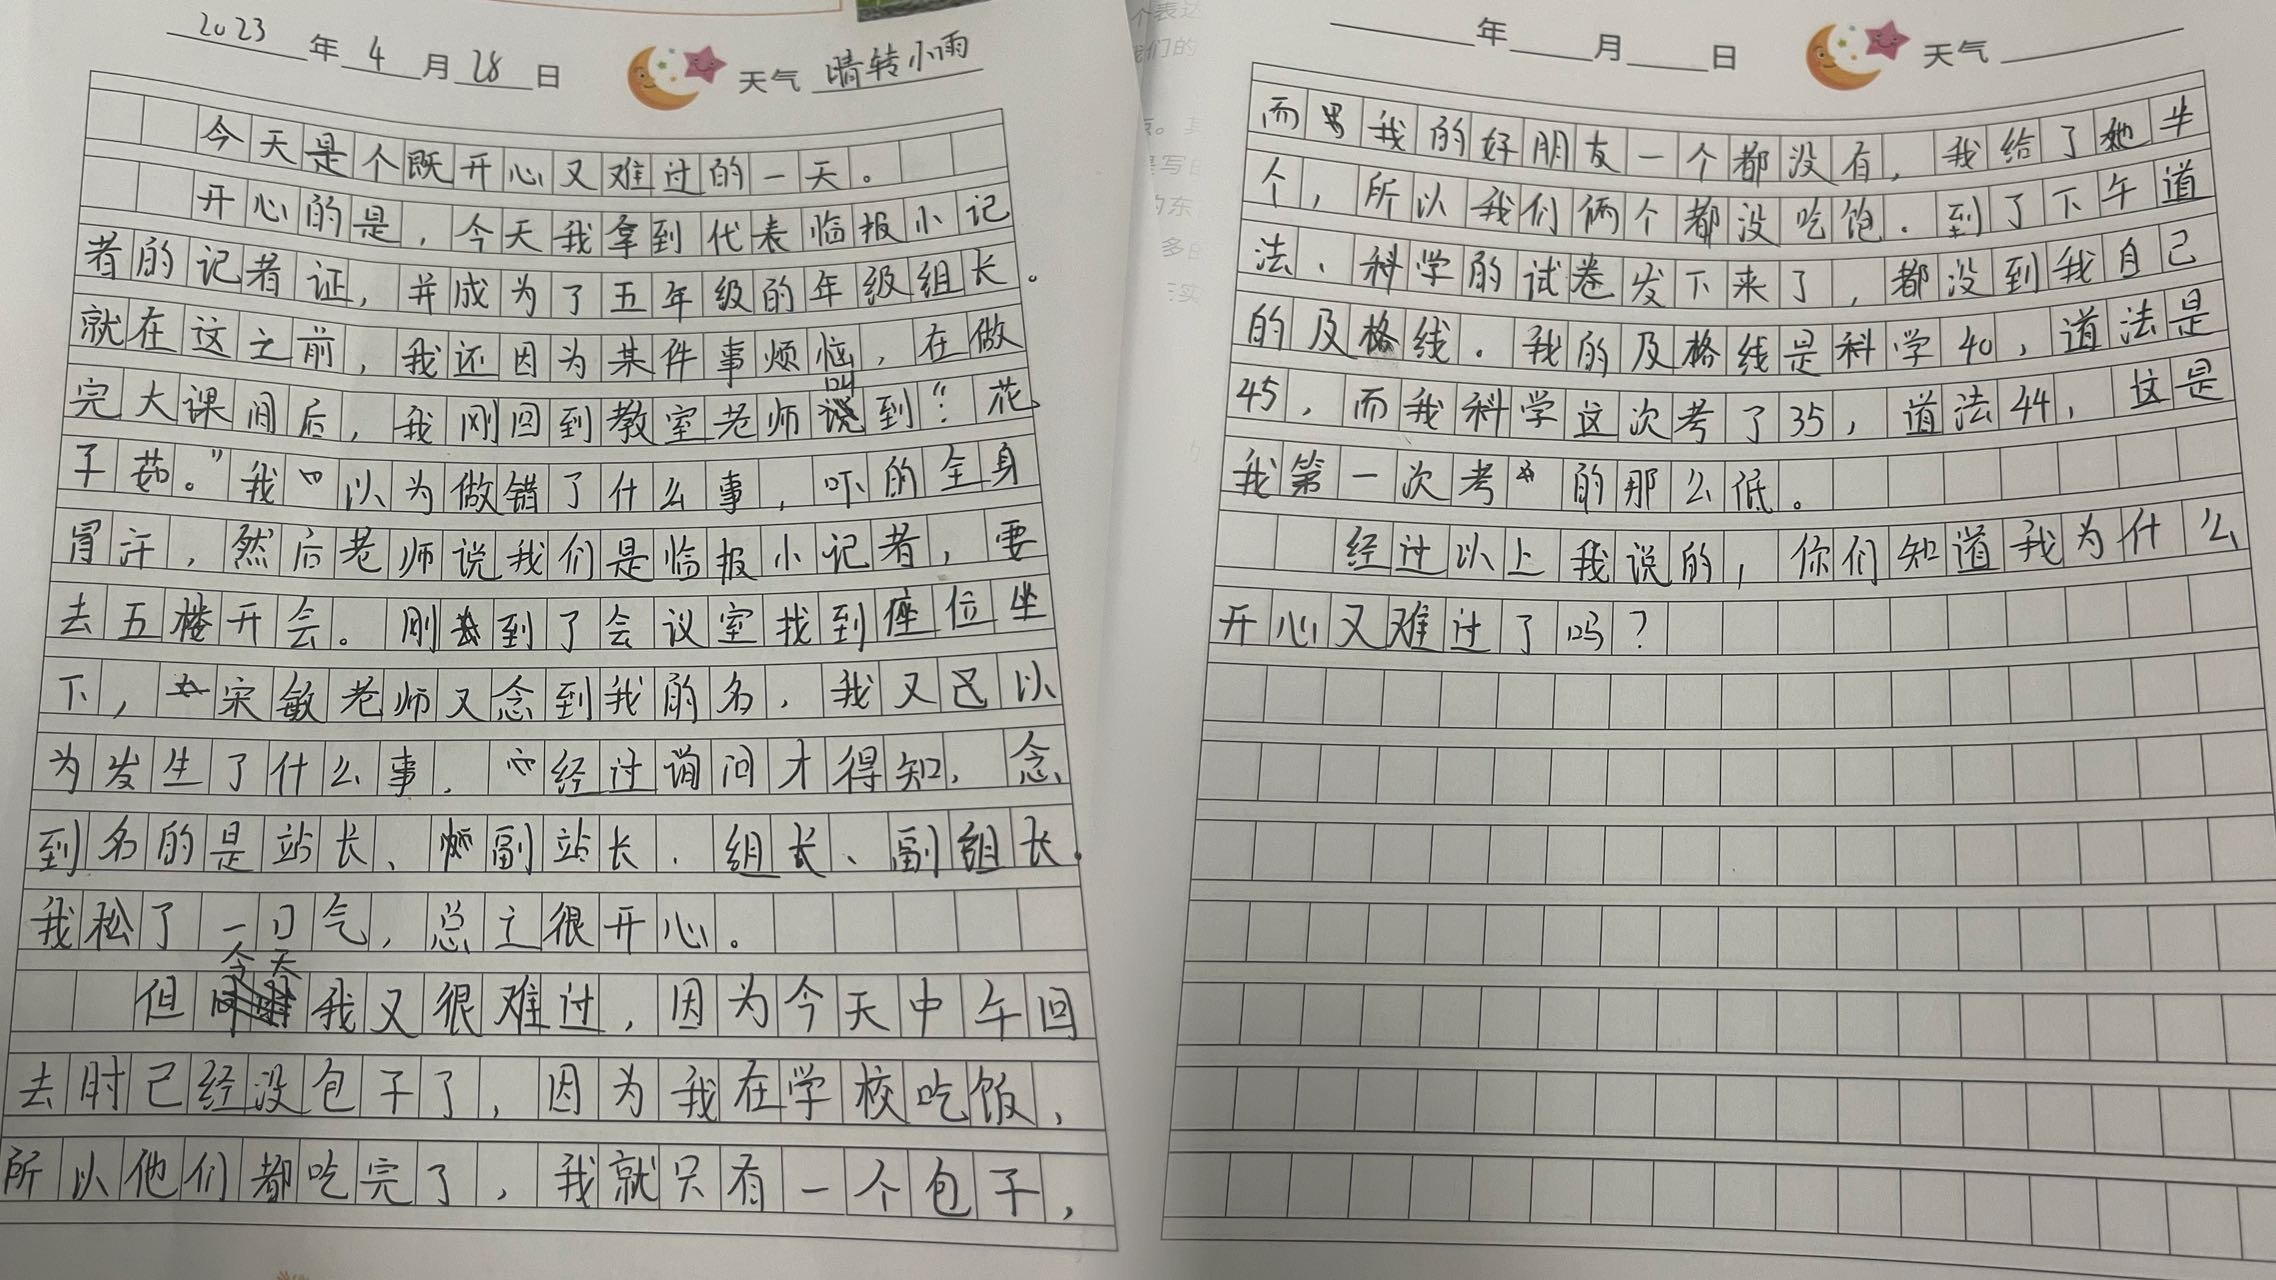 2023年4月28日 天气 晴转小雨
今天是个既开心又难过的一天。
开心的是，今天我拿到代表临报小记
者的记者证，并成为了五年级的年级组长。
就在这之前，我还因为某件事烦恼，在做
完大课间后，我刚回到教室老师叫到“花
子茹。”我以为做错了什么事，吓的全身
冒汗，然后老师说我们是临报小记者，要
去五楼开会。刚到了会议室找到座位坐
下，宋敏老师又念到我的名，我又已以
为发生了什么事，经过询问才得知，念
到名的是站长、副站长、组长、副组长。
我松了一口气，总之很开心。
但今天我又很难过，因为今天中午回
去时已经没包子了，因为我在学校吃饭，
所以他们都吃完了，我就只有一个包子，
年 月 日 天气
而我的好朋友一个都没有，我给了她半
个，所以我们俩个都没吃饱．到了下午道
法、科学的试卷发下来了，都没到我自己
的及格线．我的及格线是科学40，道法是
45，而我科学这次考了35，道法44，这是
我第一次考的那么低。
经过以上我说的，你们知道我为什么
开心又难过了吗？